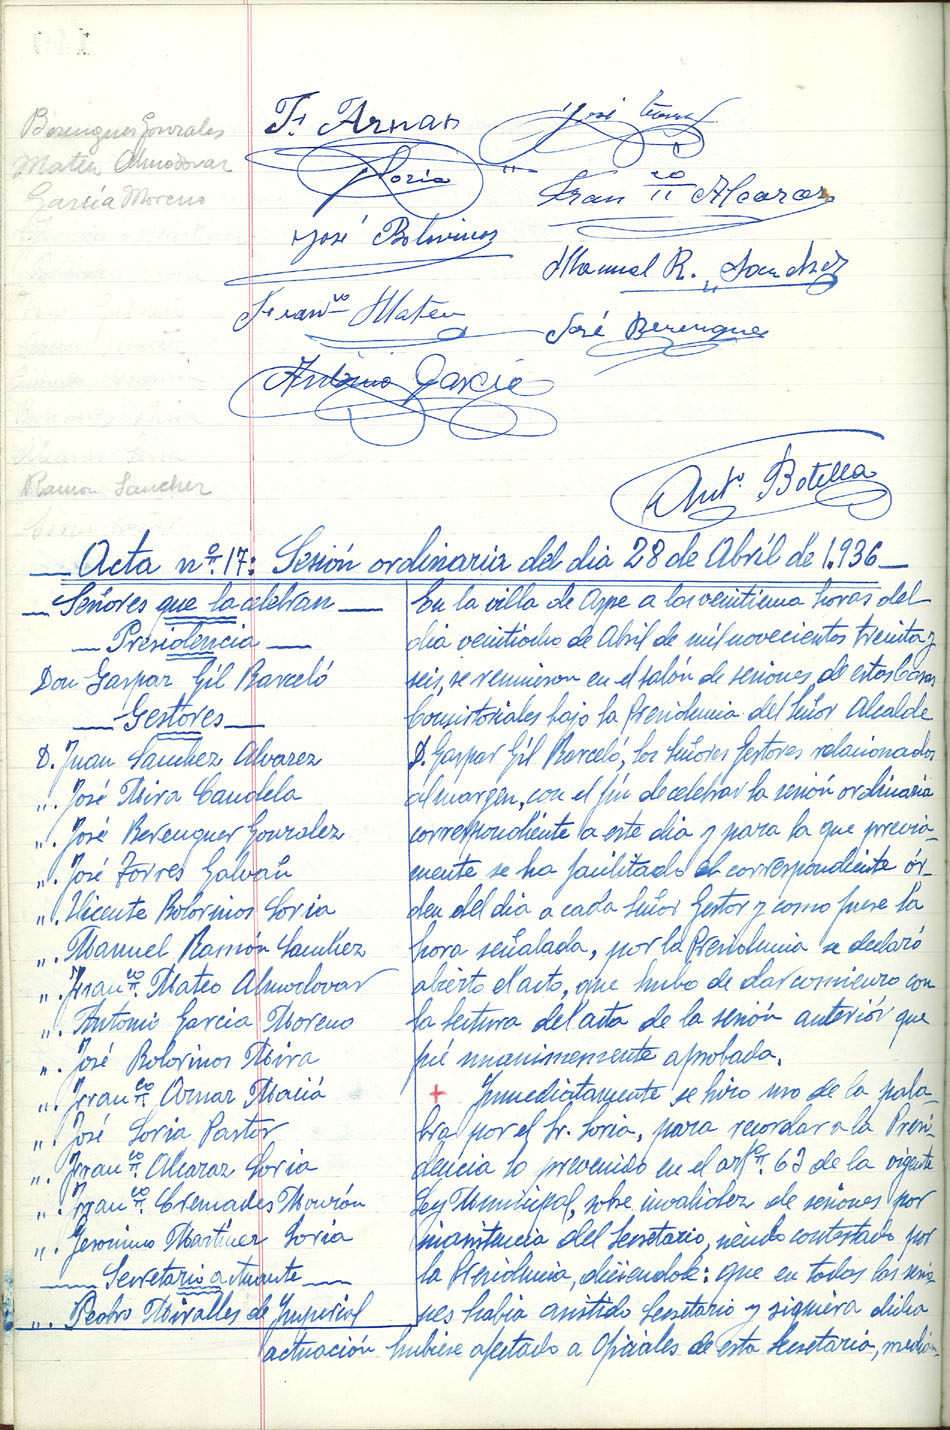 Berenguer Gonzales
Mateu Almodovar
García Moreno
Ramon Sanchez
Fr Arnar
José Torres
Soria
Fran co Alcaraz
José Bolorinos
Manuel R. Sanchez
Fran co Mateu
José Berenguer
Antonio Garcia
Ant.º Botella
Acta nº 17: Sesión ordinaria del dia 28 de Abríl de 1.936
Señores que la celebran
Presidencia
Don Gaspar Gíl Barceló
Gestores
D. Juan Sanchez Alvarez
„. José Mira Candela
„. José Berenguer Gonzalez
„. José Torres Galvañ
„. Vicente Bolorinos Soria
„. Manuel Ramón Sanchez
„. Fran co Mateo Almodovar
„. Antonio Garcia Moreno
„. José Bolorinos Mira
„. Fran co Arnar Maciá
„. José Soria Pastor
„. Fran co Alcaraz Soria
„. Fran co Cremades Mourón
„. Geronimo Martinez Soria
Secretario actuante
„. Pedro Miralles de Imperial
En la villa de Aspe a las veintiuna horas del
dia veintiocho de Abril de mil novecientos treinta y
seis, se reunieron en el salón de sesiones de estas Casas
Consistoriales bajo la Presidencia del Señor Alcalde
D. Gaspar Gil Barceló, los Señores Gestores relacionados
al margen, con el fin de celebrar la sesión ordinaria
correspondiente a este dia y para la que previa-
mente se ha facilitado el correspondiente ór-
den del dia a cada Señor Gestor y como fuese la
hora señalada, por la Presidencia se declaró
abierto el acto, que hubo de dar comienzo con
la lectura del acta de la sesión anteriór que
fué unanimemente aprobada.
+ Inmediatamente se hizo uso de la pala-
bra por el Sr. Soria, para recordar a la Presi-
dencia lo prevenido en el artº. 63 de la vigente
Ley Municipal, sobre invalidez de sesiones por
inasistencia del Secretario, siendo contestado por
la Presidencia, diciendole: que en todas las sesio-
nes habia asistido Secretario y siquiera dicha
actuación hubiese afectado a Oficiales de esta Secretaria, median-